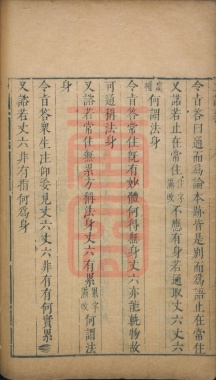 今旨答曰通而為論本跡皆是別而為語止在常住
又諮若止在常住不應有身若通取丈六丈六
何謂法身
今旨答常住既有妙體何得無身丈六亦能軌物故
可通稱法身
又諮若常住無累方稱法身丈六有累何謂法
身
今旨答眾生注仰妄見丈六丈六非有有何實累
又諮若丈六非有指何為身